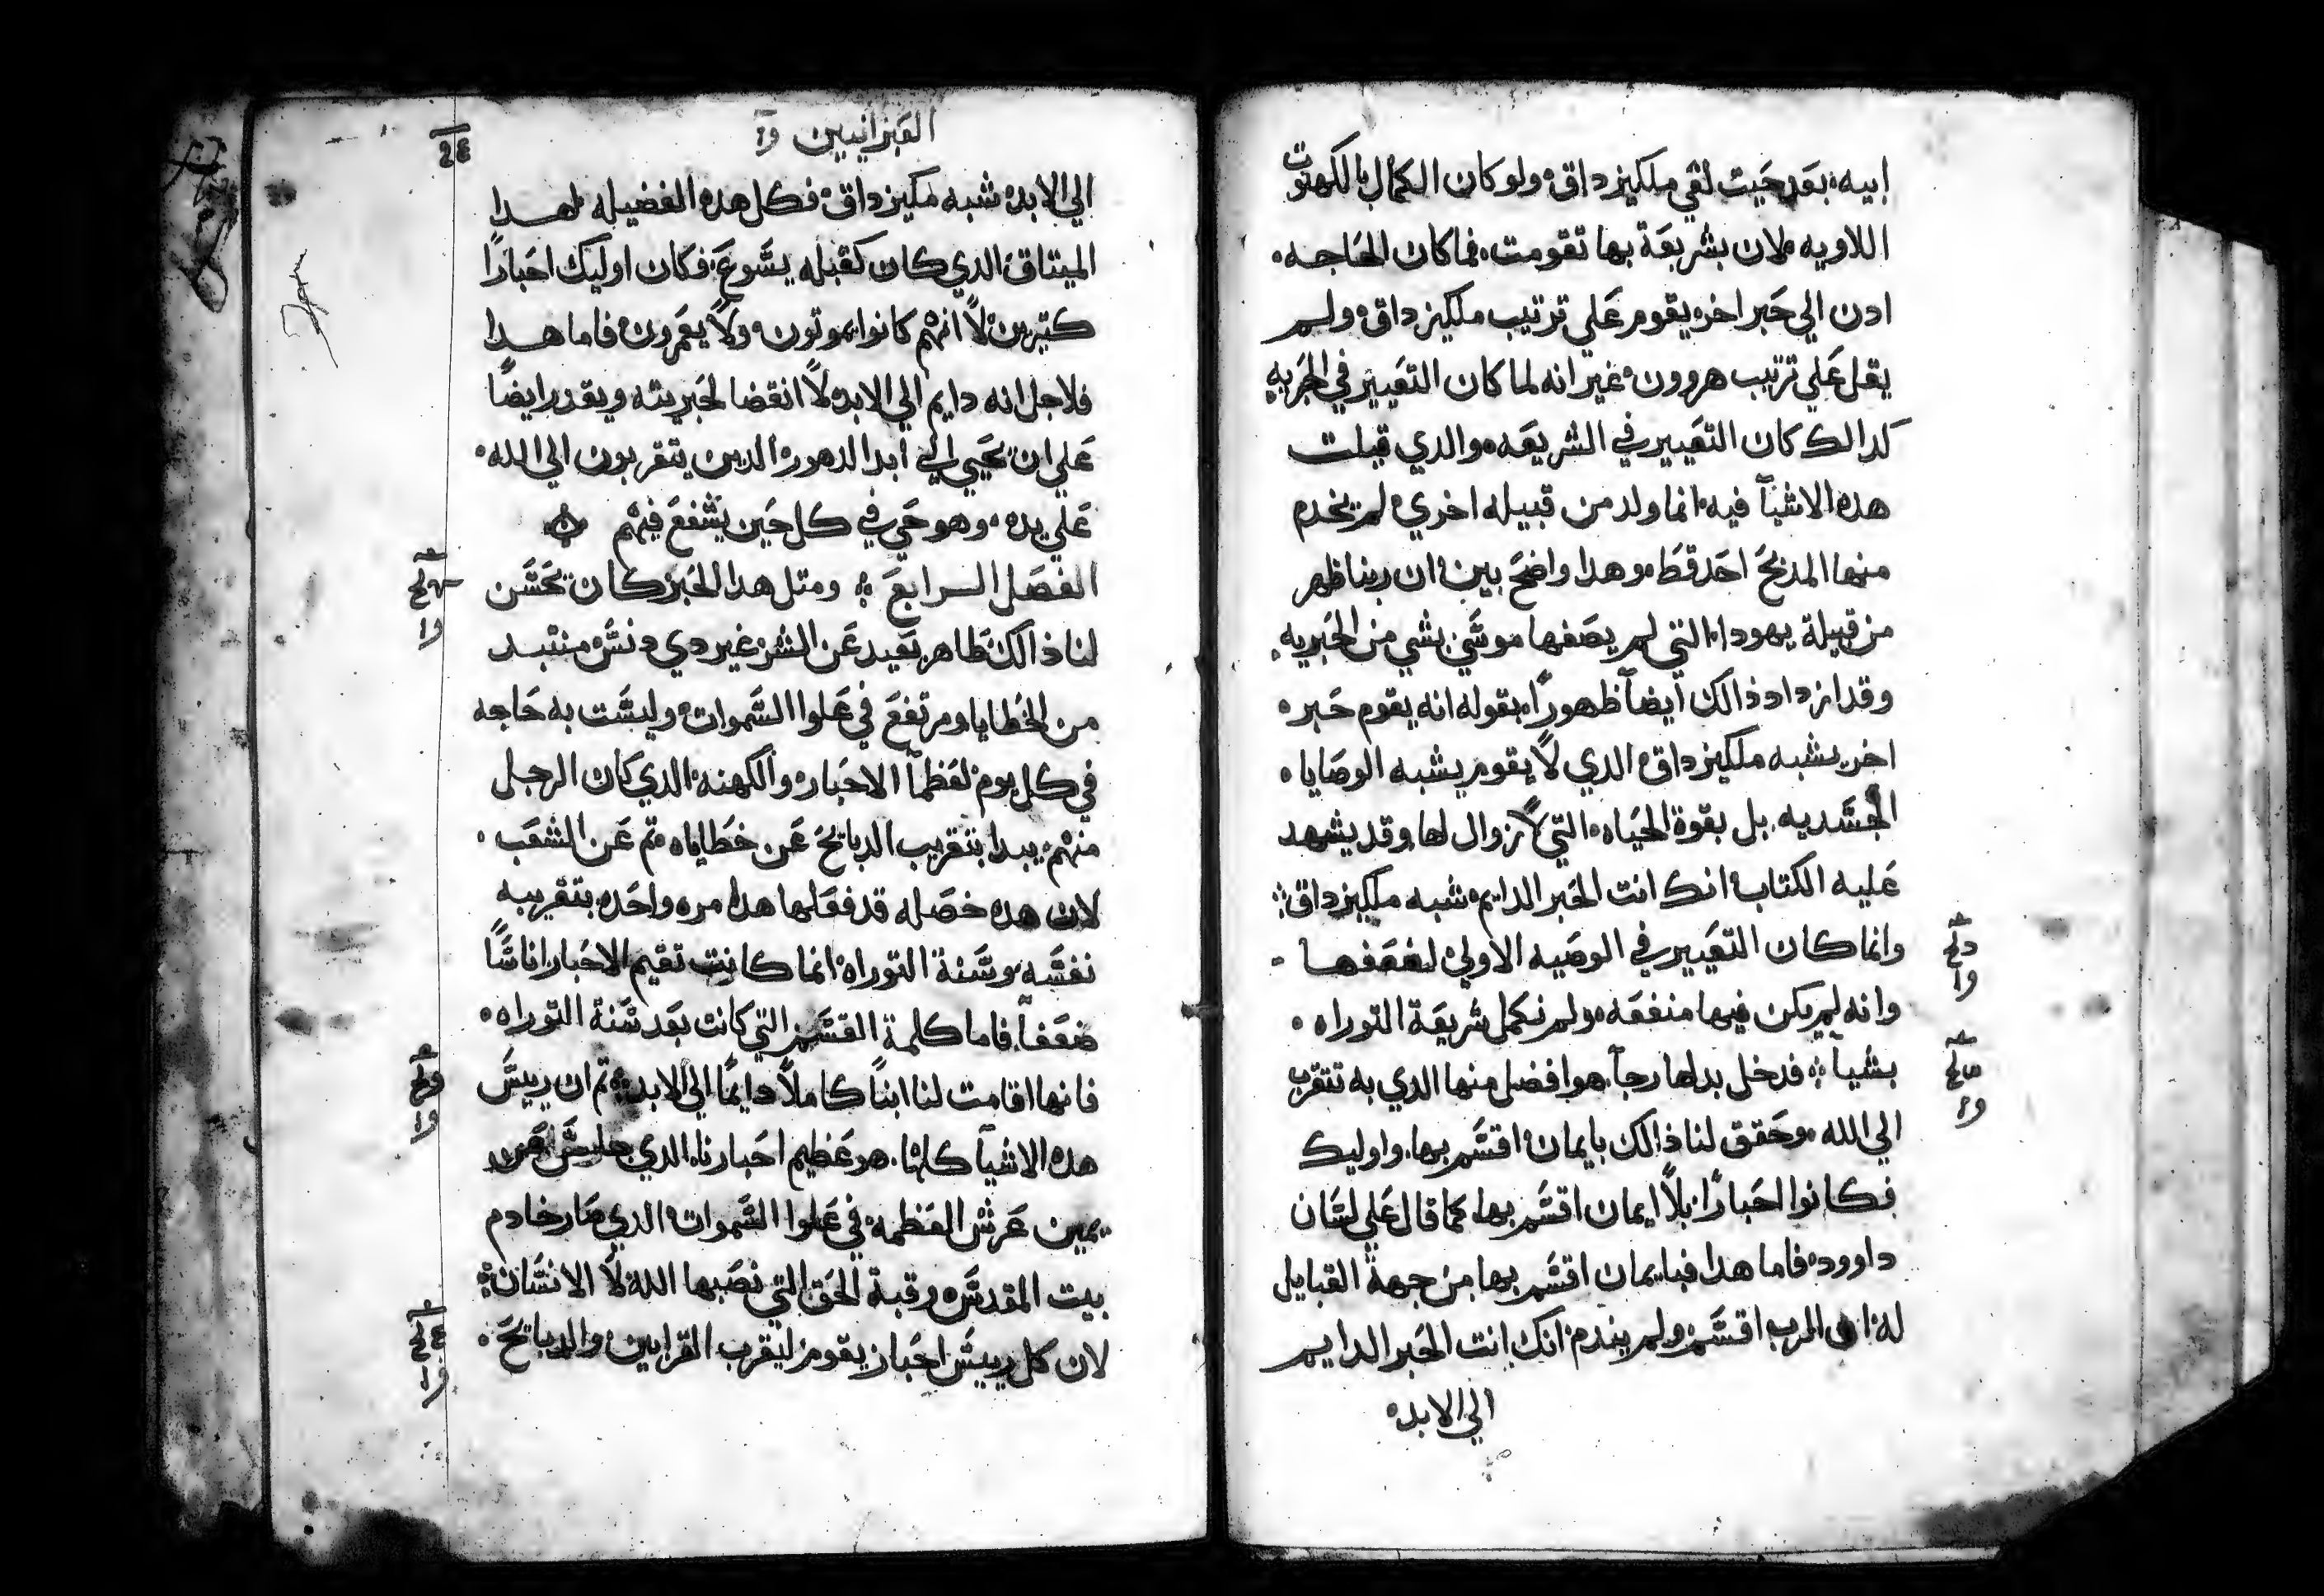 ابيه بعد حيت لقي ملكيزداق ولو كان الكمال بالكهنوت
اللاويه لان بشريعة بها تقومت فما كان الحاجه
ادن الي حبر اخر يقوم علي ترتيب ملكيزداق ولم
يقل علي ترتيب هرون غير انه لما كان التغيير في الحبريه
كدالك كان التغيير في الشريعه والدي قيلت
هده الاشيآ فيه انما ولد من قبيله اخري لم يخدم
منها المدبح احد قط وهدا واضح بين ان ربنا ظهر
من قبيلة يهودا التي لم يصفها موسي بشي من الحبريه
وقد ازداد ذالك ايضاً ظهوراً بقوله انه يقوم حبر
اخر يشبه ملكيزداق الدي لا يقوم يشبه الوصايا
الجسديه بل بقوة الحياه التي لا زوال لها وقد يشهد
عليه الكتاب انك انت الحبر الدايم شبه ملكيزداق
وانما كان التغيير في الوصيه الاولي لضعفها
وانه لم يكن فيها منفعه ولم تكمل شريعة التوراه
بشيآ فدخل بدلها رجآ هو افضل منها الدي به نتقرب
الي الله وحقق لنا ذالك بايمان اقسم بها واوليك
فكانوا احباراً بلا ايمان اقسم بها كما قال علي لسان
داوود فاما هدا فبايمان اقسم بها من جهة القبايل
له ان الرب اقسم ولم يندم انك انت الحبر الدايم
الي الابد
العبرانيين
الي الابد شبه مكيزداق فكل هده الفضيله لهدا
الميتاق الدي كان كفيله يسوع فكان اوليك احباراً
كتيرين لا انهم كانوا يموتون ولا يعمرون فاما هدا
فلاجل انه دايم الي الابد لا انقضا لحبريته ويقدر ايضاً
علي ان يحيي الي ابد الدهور الدين يتقربون الي الله
علي يده وهو حي في كل حين يشفع فيهم
الفصل السرابع ومتل هدا الحبر كان يحسن
لنا ذالك طاهر بعيد عن الشر غير دي دنس منتبد
من الخطايا ومرتفع في علوا السموات وليست به حاجه
في كل يوم لعظمآ الاحبار والكهنه الدي كان الرجل
منهم يبدا بتقريب الدبايح عن خطاياه تم عن الشعب
لان هده خصله قد فعلها هدا مره واحده بتقريبه
نفسه وسنة التوراه انما كانت تقيم الاحبار اناساً
ضعفآ فاما كلمة القسم التي كانت بعد سنة التوراه
فانها اقامت لنا ابناً كاملاً دايماً الي الابد تم ان رييس
هده الاشيآ كلها هو عظيم احبارنا الدي جلس عن
يمين عرش العظمه في علوا السموات الدي صار خادم
بيت المقدس وقبة الحق التي نصبها الله لا الانسان
لان كل رييس احبار يقوم ليقرب القرابين والدبايح